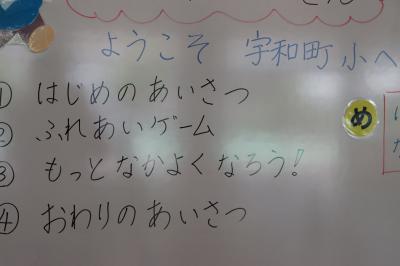 ようこそ 宇和町小へ
① はじめの あいさつ
② ふれあいゲーム
③ もっと なかよく なろう!
④ おわりの あいさつ
め